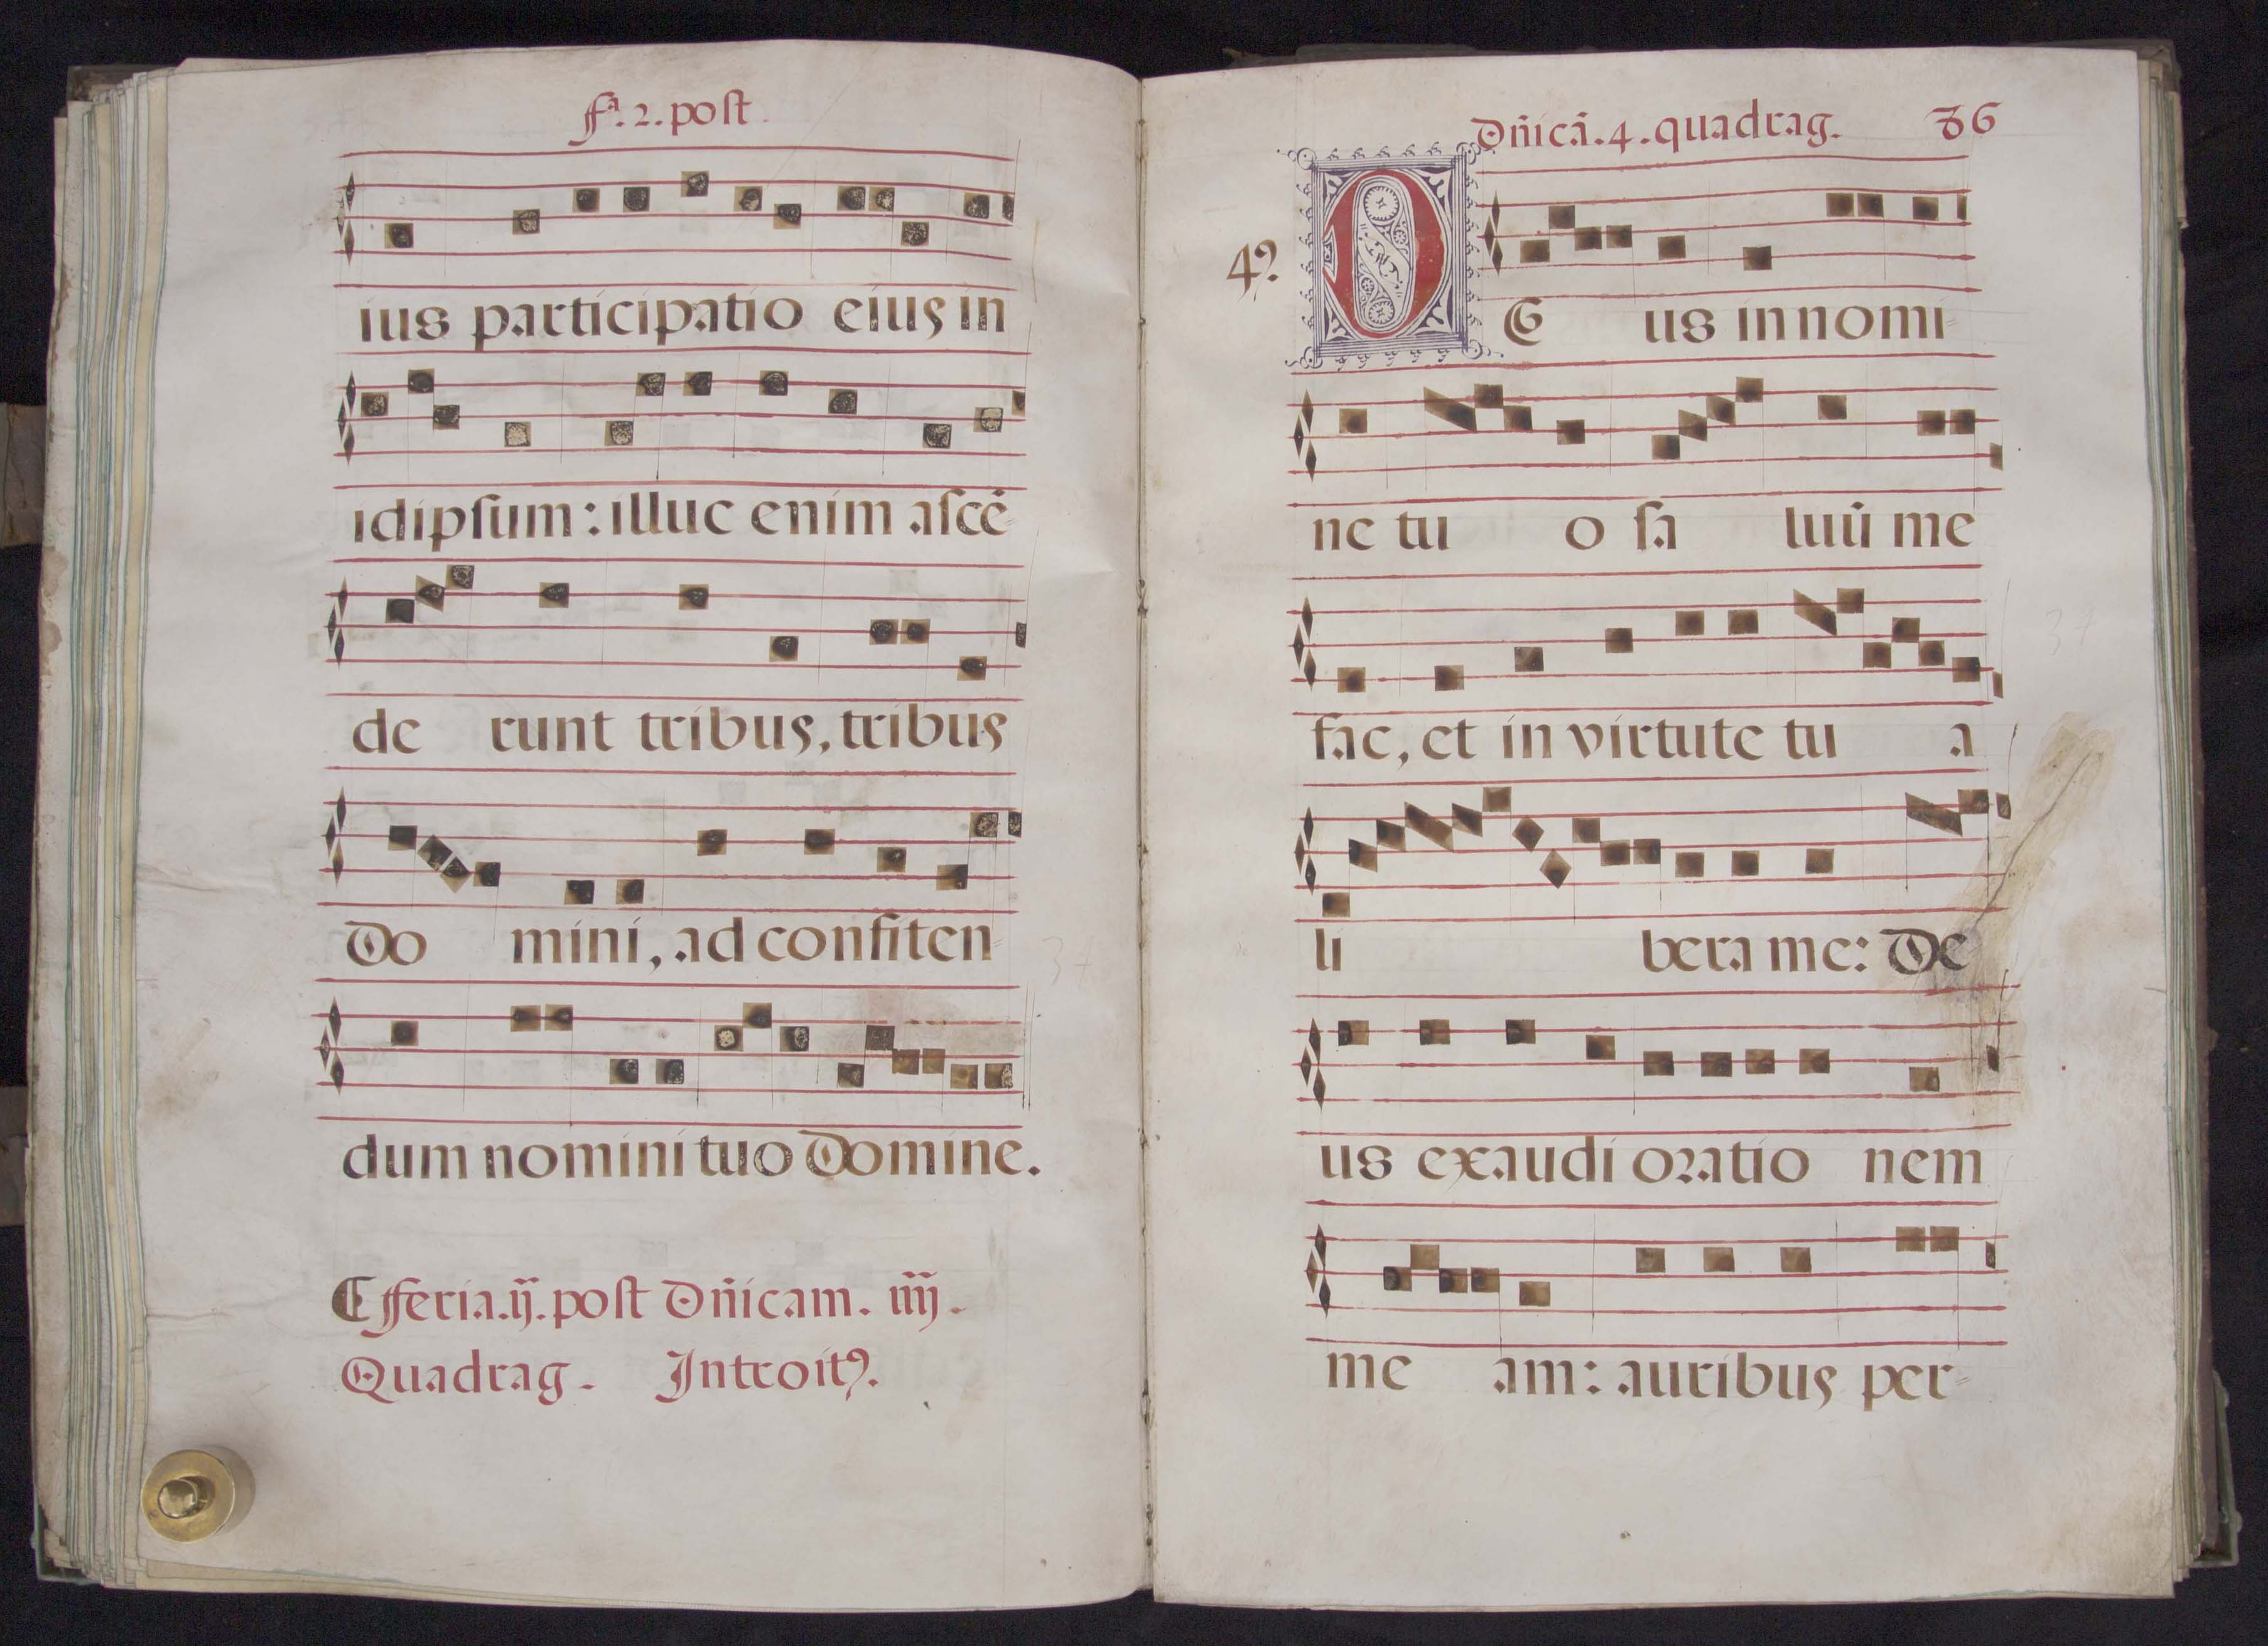 fª. 2. post
ius participatio eius in
idipsum: illuc enim ascē-
de runt tribus, tribus
Do mini, ad confiten-
dum nomini tuo Domine.
feria. ij. post Dñicam. iiij.
Quadrag. Introitꝰ.
Dñicā. 4. quadrag. 86
4?
DE us in nomi-
ne tu o sa luū me
fac, et in virtute tu a
li bera me: De
us exaudi oratio nem
me am: auribus per-